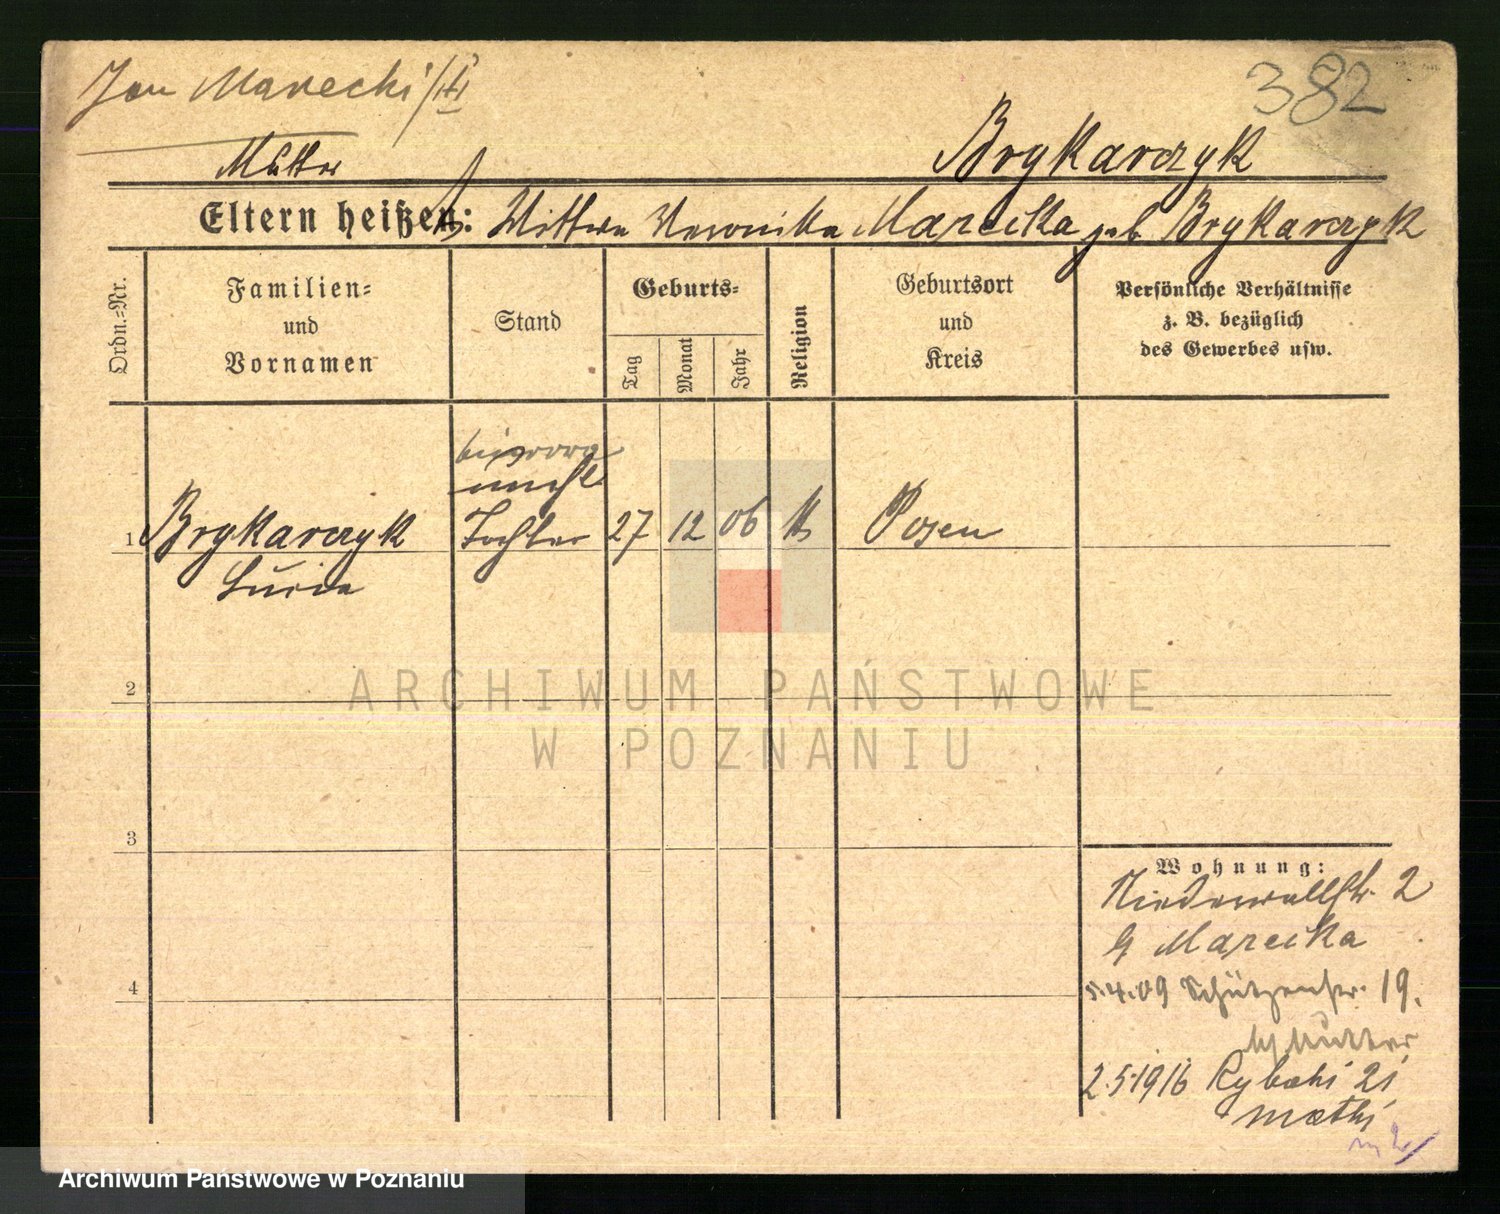 Jan Marecki/III
382
Brykarczyk
Mutter
Eltern heißen: Wittwe Veronika Marecka geb Brykarczyk
Ordn.-Nr.
Familien-
und
Vornamen
Stand
Geburts-
Tag
Monat
Jahr
Religion
Geburtsort
und
Kreis
Persönliche Verhältnisse
z. B. bezüglich
des Gewerbes usw.
unehl
1 Brykarczyk Tochter 27 12 06 k Posen
Lucia
2
3
4
Wohnung:
Niederwallstr. 2
Marecka
5.4.09 Schützenstr. 19.
Mutter
2.5.1916 Rybaki 21
matki
ARCHIWUM PAŃSTWOWE
W POZNANIU
Archiwum Państwowe w Poznaniu